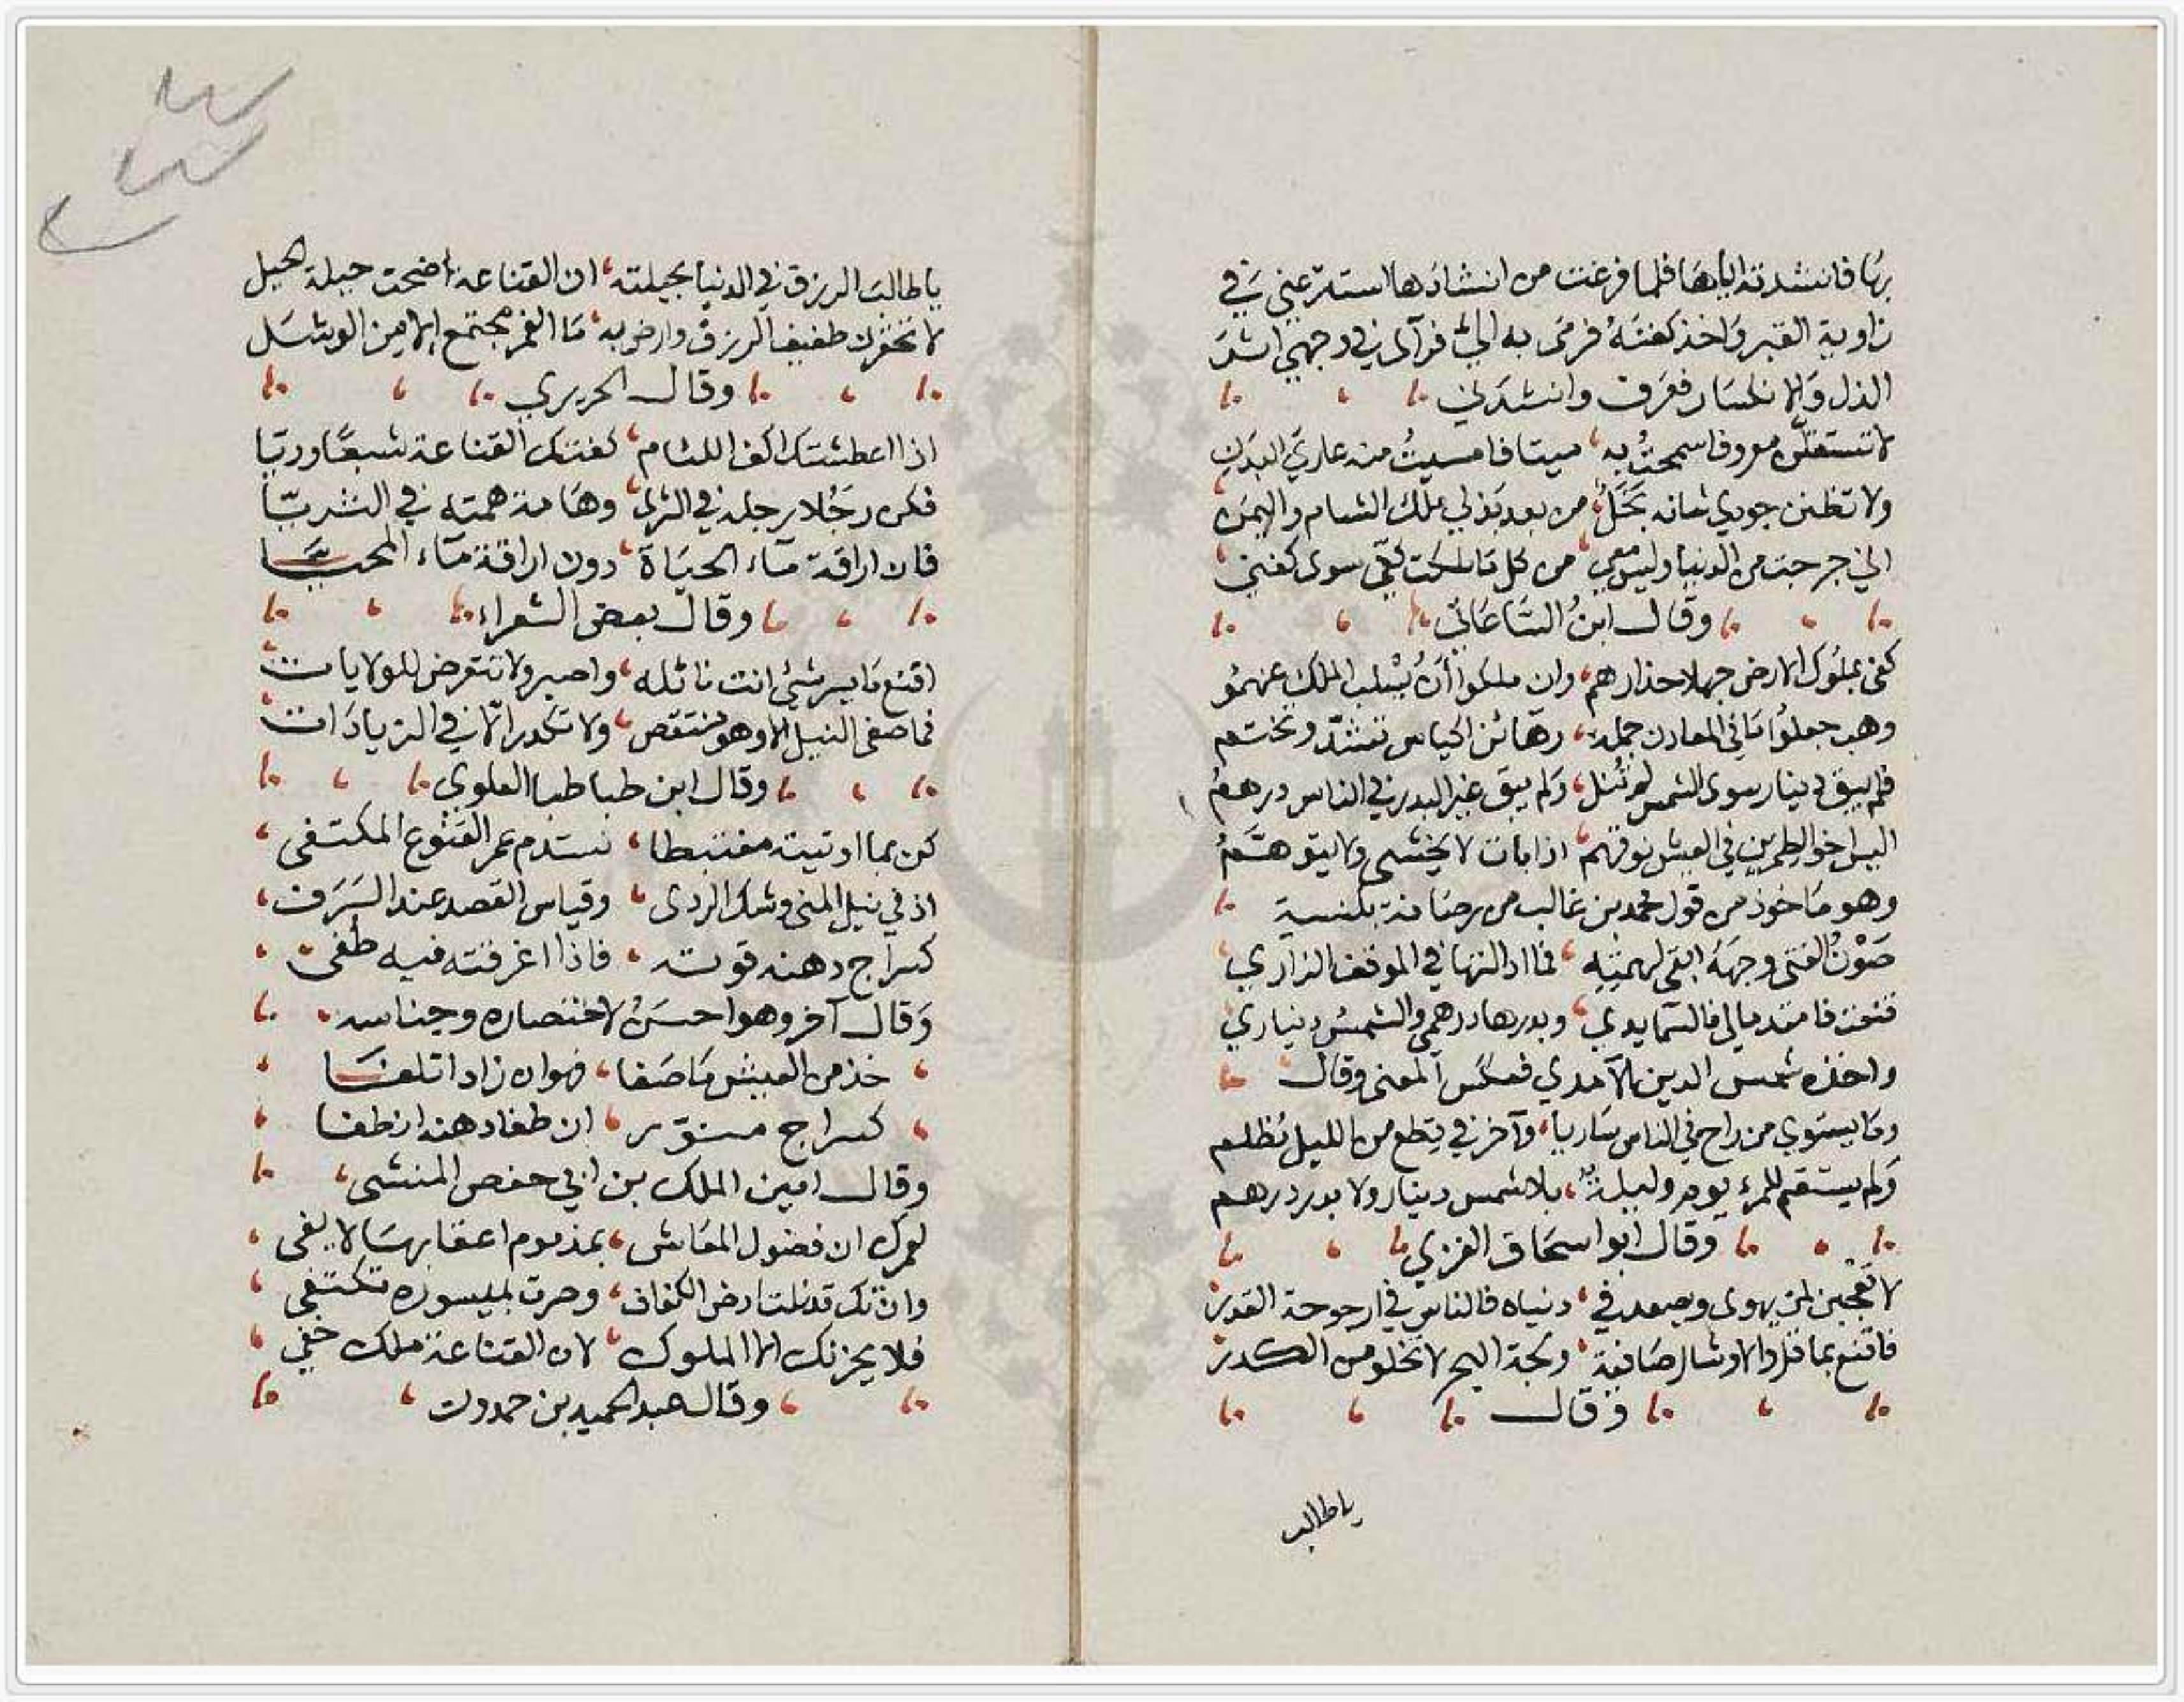 بها فانشدته اياها فلما فرغت من انشادها استترعني في
زاوية القبر واخذ كفنه فرمى به اليّ فرآى في وجهي اثر
الذل والانكسار فعرف وانشدني
لا تستقلّن معروفا سمحتُ به ميتا فامسيتُ منه عاري البدن
ولا تظنن جودي شانه بَخَلٌ من بعد بذلي ملك الشام واليمن
اني خرجت من الدنيا وليس معي من كل ما ملكت كفّي سوى كفني
وقال ابن الساعاتي
كفى بملوك الارض جهلا حذارهم وان ملكوا أن يُسْلب الملك عنهمُ
وهب جعلوا ما في المعادن جملة رهائن اكياس تشدّ وتختم
فلم يبق دينار سوى الشمس لم تُنل ولم يبق غير البدر في الناس درهمُ
اليس اخو الطمرين في العيش فوقهم اذا بات لا يخشى ولا يتوهّمُ
وهو مأخوذ من قول محمد بن غالب من رصافة بلنسية
صَوْنُ الفتى وجهه ابقى لهمّته في الموقف الزاري
قنعت فامتد مالي فالسما يدي وبدرها درهمي والشمس ديناري
واخذه شمس الدين الآمدي فعكس المعنى وقال
وما يستوي من راح في الناس ساريا وآخر في قطع من الليل مُظلم
ولم يستقم للمرء يوم وليلة بلا شمس دينار ولا بدر درهم
وقال ابو اسحاق الغزي
لا تعجبن لمن يهوى ويصعد في دنياه فالناس في ارجوحة القدر
فاقنع بما قل والاوشال صافية ولجة البحر لا تخلو من الكدر
وقال
يا طالب
يا طالب الرزق في الدنيا بحيلته ان القناعة اضحت حيلة الحيل
لا تحقرن طفيف الرزق وارض به ما الغمر مجتمع الا من الوشل
وقال الحريري
اذا اعطشتك اكف اللئام كفتك القناعة شبعًا وريّا
فكن رجلا رجله في الثرى وهامة همته في الثريّا
فان اراقة مآء الحياة دون اراقة مآء المحيّا
وقال بعض الشعراء
اقنع بايسر شيئ انت نائله واصبر ولا تتعرض للولايات
فما صفى النيل الا وهو منتقص ولا تكدر الا في الزيادات
وقال ابن طباطبا العلوي
كن بما اوتيته مغتبطا تستدم عمر القنوع المكتفى
ان في نيل المنى وشك الردى وقياس القصد عند السَرَف
كسراج دهنه قوت له فاذا اغرقته فيه طفي
وقال آخر وهو احسن لاختصاره وجناسه
خذ من العيش ما صفا فهو ان زاد اتلفا
كسراج منوّر ان طفا دهنه انطفا
وقال امين الملك بن ابي حفص المنشى
لعمرك ان فضول المعاش بمذموم اعقابها لا يفى
وان تك قد نلت ارض الكفاف وصرت بميسوره تكتفي
فلا يحزنك الملوك لان القناعة ملك خفي
وقال عبد الحميد بن حمدون